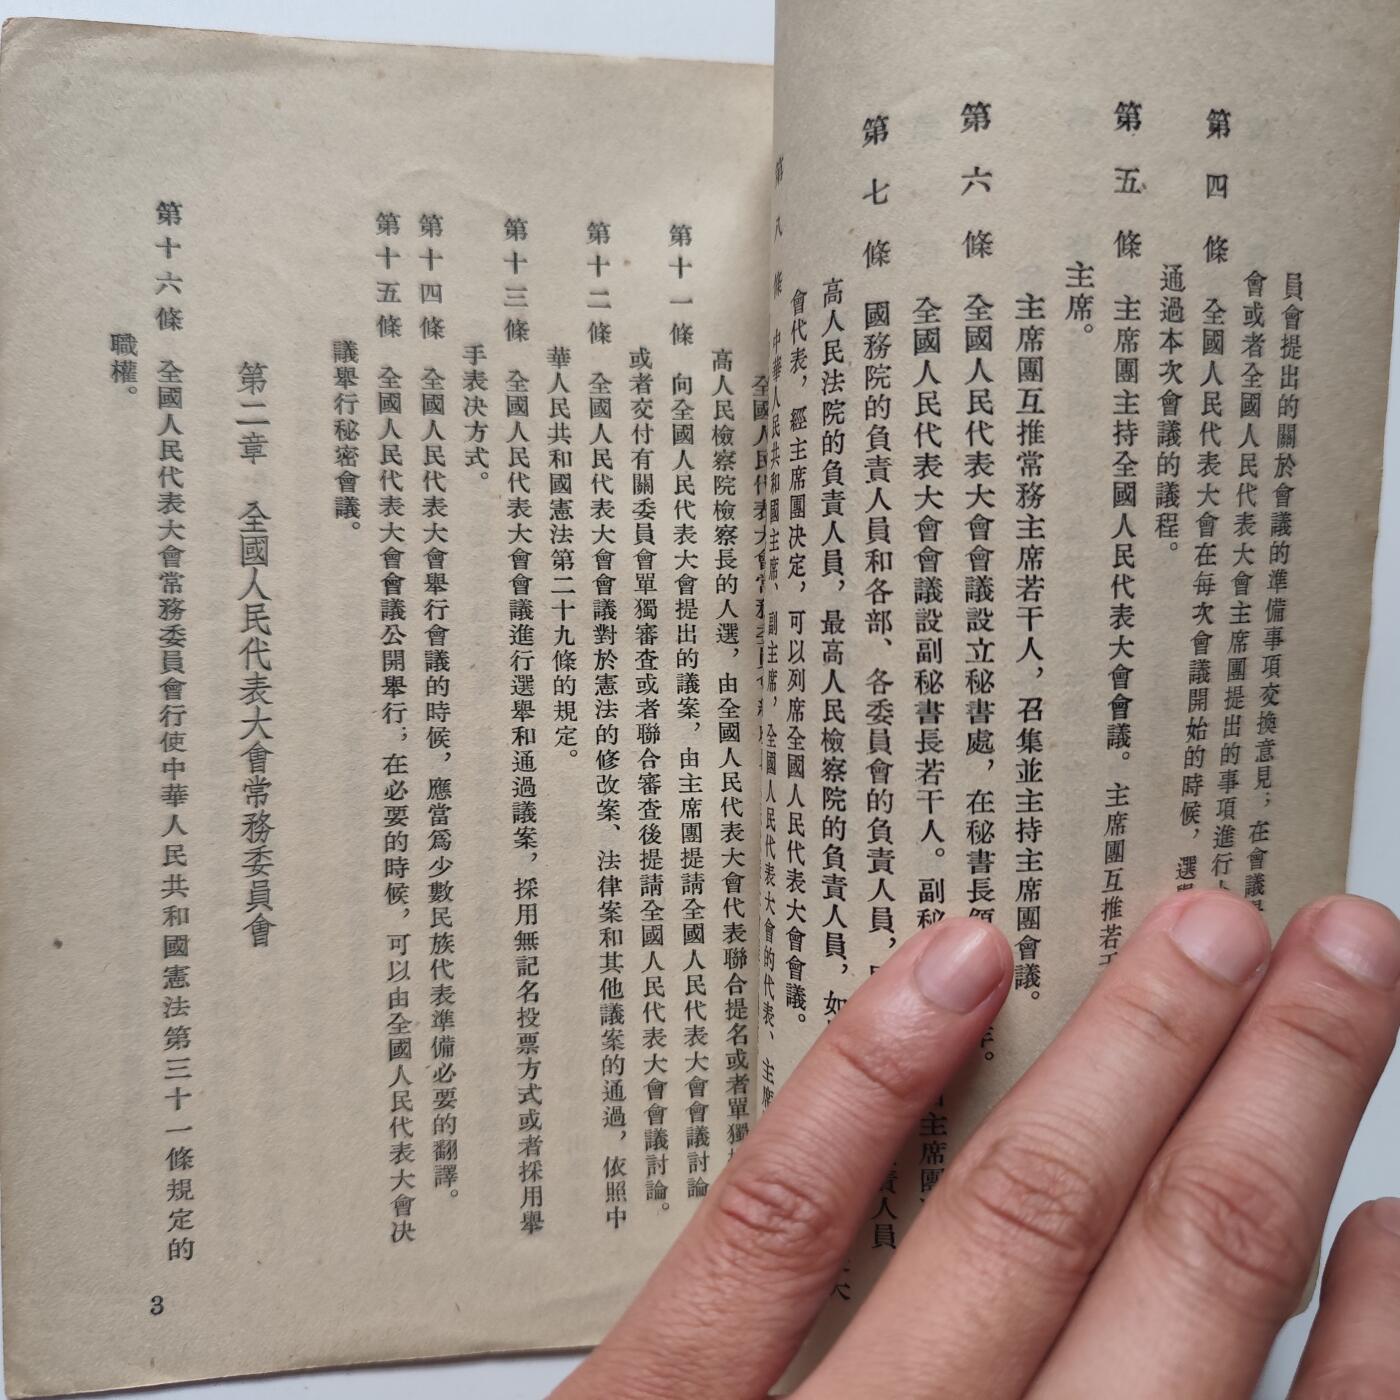 員會提出的關於會議的準備事項交換意見；在會議
會或者全國人民代表大會主席團提出的事項進行
第四條 全國人民代表大會在每次會議開始的時候，選
通過本次會議的議程。
第五條 主席團主持全國人民代表大會會議。主席團互推若干
主席。
主席團互推常務主席若干人，召集並主持主席團會議。
第六條 全國人民代表大會會議設立秘書處，在秘書長領
全國人民代表大會會議設副秘書長若干人。副秘 主席團
第七條 國務院的負責人員和各部、各委員會的負責人員， 責人員
高人民法院的負責人員，最高人民檢察院的負責人員，如
會代表，經主席團決定，可以列席全國人民代表大會會議。
第八條 中華人民共和國主席、副主席，全國人民代表大會的代表、主席
全國人民代表大會常務委員
高人民檢察院檢察長的人選，由全國人民代表大會代表聯合提名或者單獨
第十一條 向全國人民代表大會提出的議案，由主席團提請全國人民代表大會會議討論
或者交付有關委員會單獨審查或者聯合審查後提請全國人民代表大會會議討論。
第十二條 全國人民代表大會會議對於憲法的修改案、法律案和其他議案的通過，依照中
華人民共和國憲法第二十九條的規定。
第十三條 全國人民代表大會會議進行選舉和通過議案，採用無記名投票方式或者採用舉
手表决方式。
第十四條 全國人民代表大會舉行會議的時候，應當爲少數民族代表準備必要的翻譯。
第十五條 全國人民代表大會會議公開舉行；在必要的時候，可以由全國人民代表大會决
議舉行秘密會議。
第二章 全國人民代表大會常務委員會
第十六條 全國人民代表大會常務委員會行使中華人民共和國憲法第三十一條規定的
職權。
3